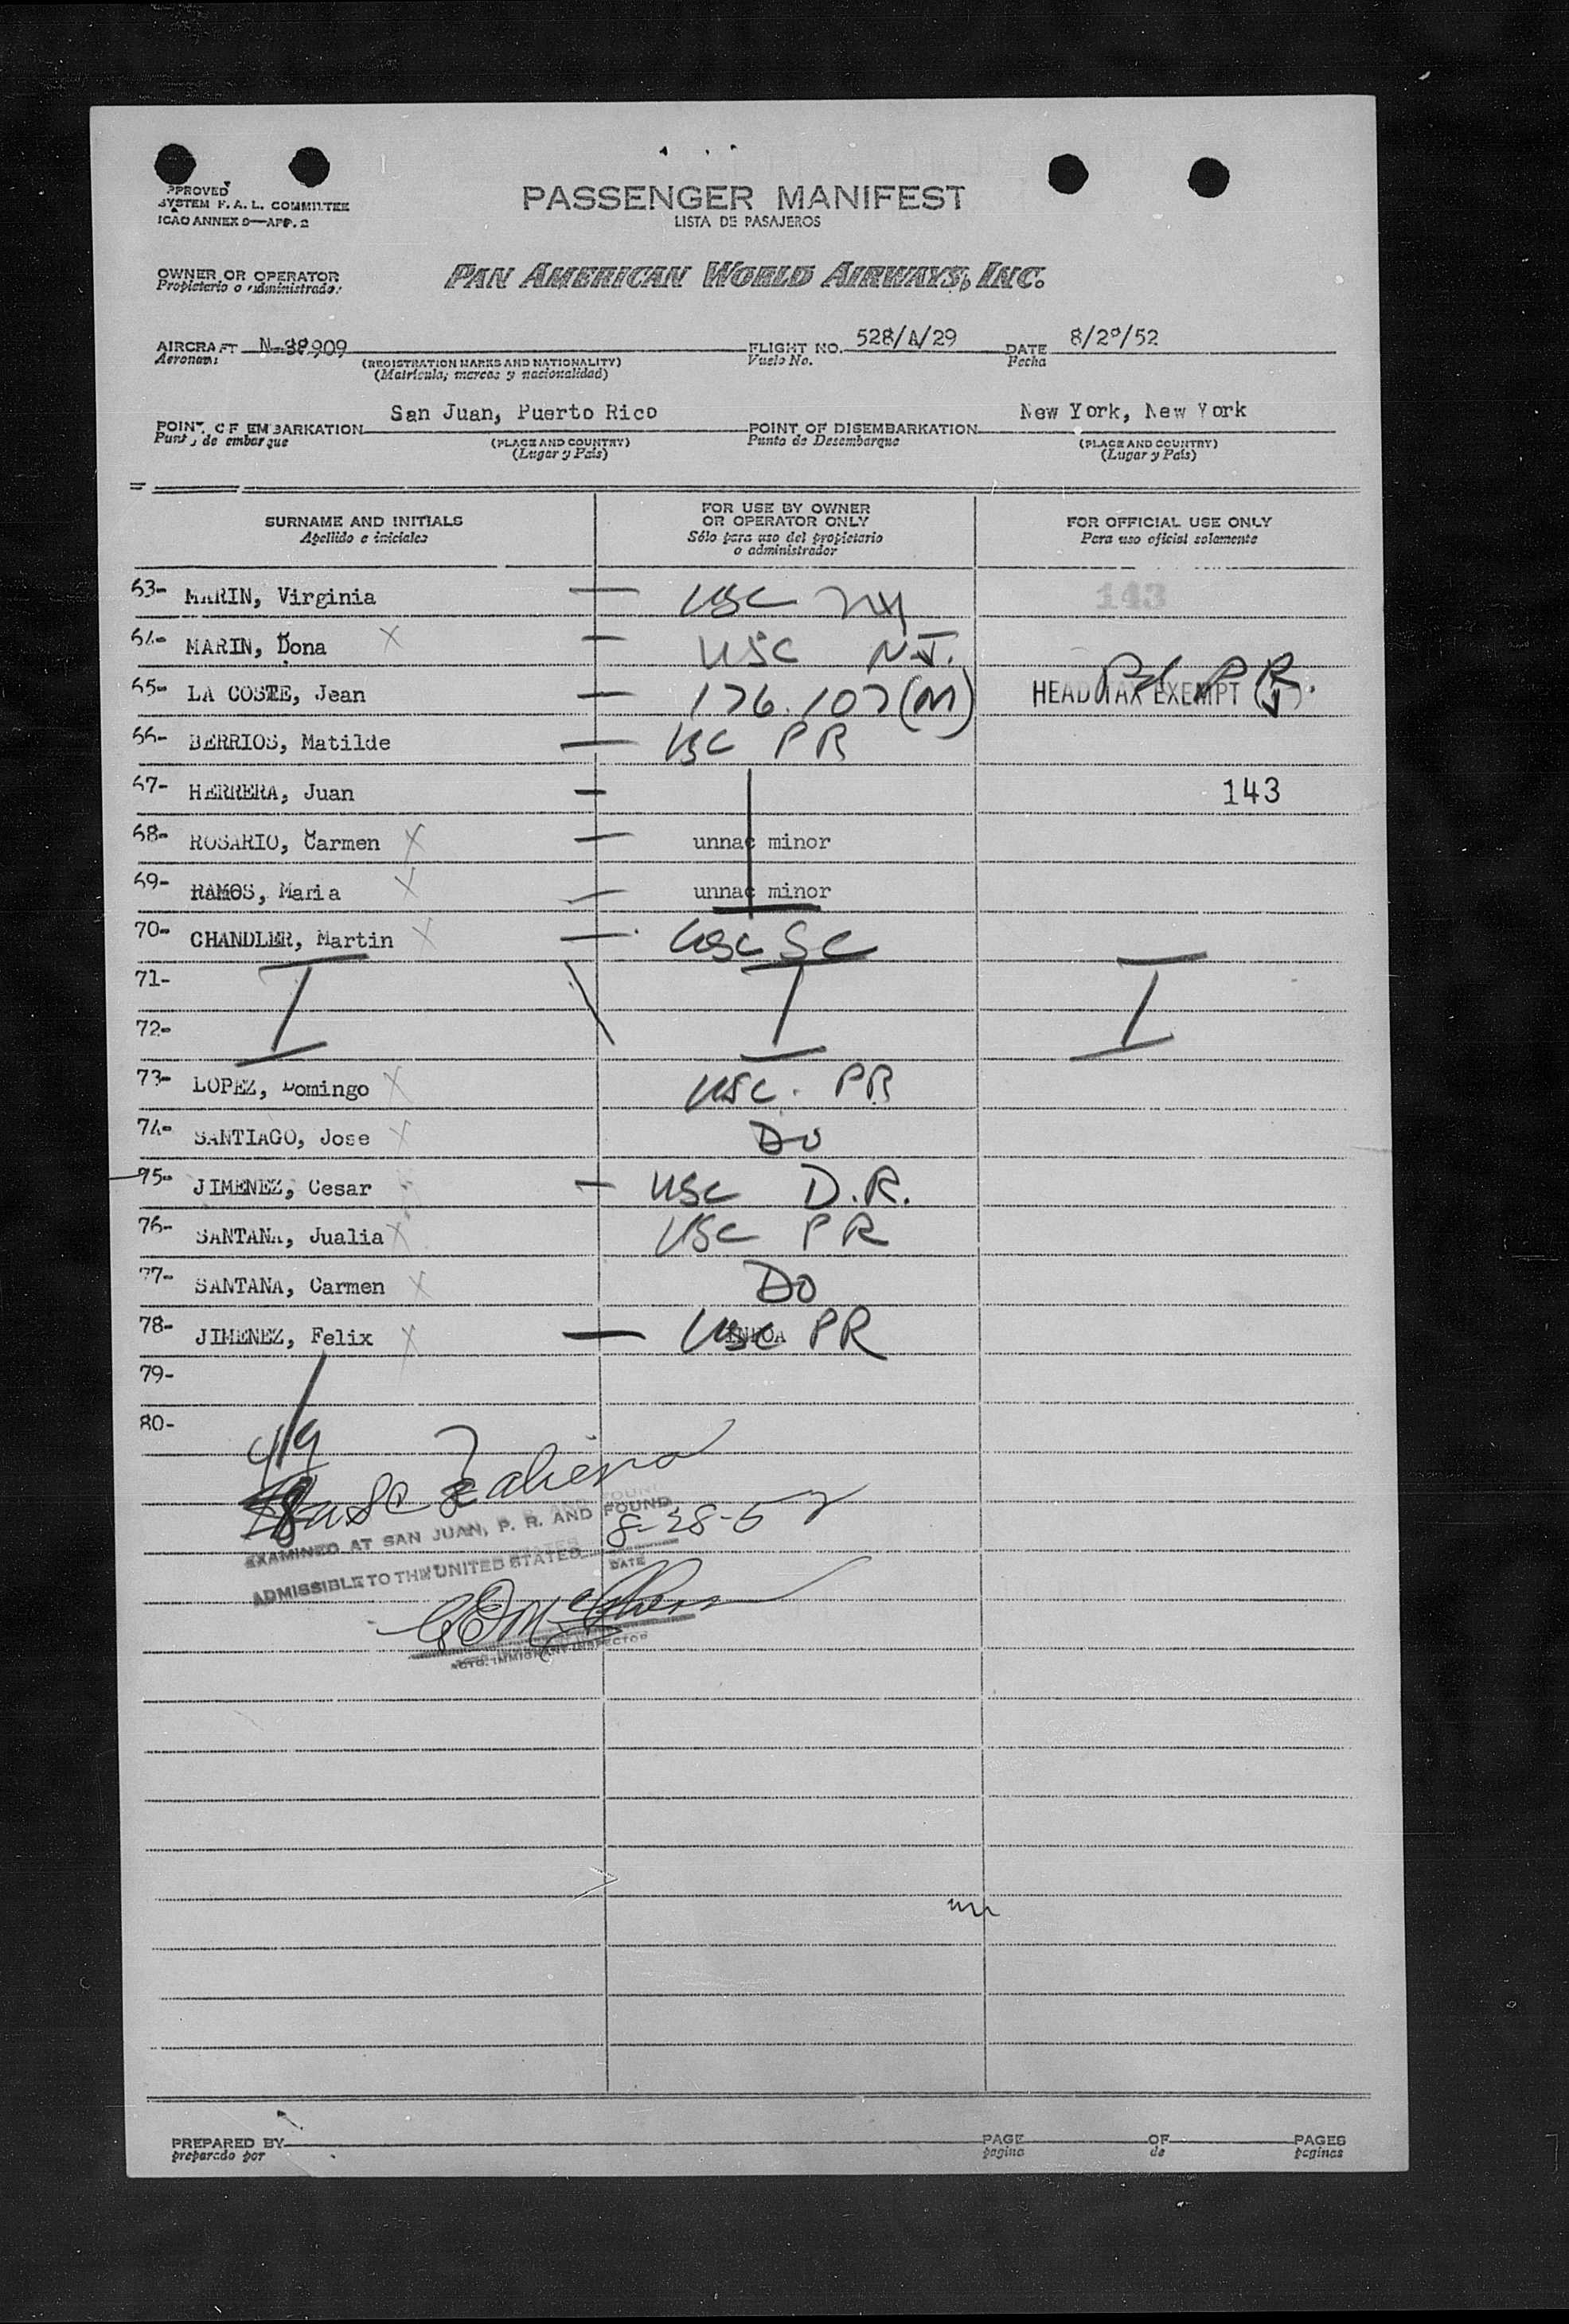 APPROVED
SYSTEM F. A. L. COMMITTEE
ICAO ANNEX 9—APP. 2
PASSENGER MANIFEST
LISTA DE PASAJEROS
OWNER OR OPERATOR
Propietario o administrador
PAN AMERICAN WORLD AIRWAYS, INC.
AIRCRAFT N-38909 FLIGHT NO. 528/A/29 DATE 8/29/52
Aeronave (REGISTRATION MARKS AND NATIONALITY) Vuelo No. Fecha
(Matrícula, marcas y nacionalidad)
POINT OF EMBARKATION San Juan, Puerto Rico POINT OF DISEMBARKATION New York, New York
Punto de embarque (PLACE AND COUNTRY) Punto de Desembarque (PLACE AND COUNTRY)
(Lugar y País) (Lugar y País)
SURNAME AND INITIALS FOR USE BY OWNER OR OPERATOR ONLY FOR OFFICIAL USE ONLY
Apellido e iniciales Sólo para uso del propietario o administrador Para uso oficial solamente
63- MARIN, Virginia — USC NY 143
64- MARIN, Dona X — USC N.J.
65- LA COSTE, Jean — 176.107(M) HEAD TAX EXEMPT Pd P.R.
66- BERRIOS, Matilde — USC PR
67- HERRERA, Juan — 143
68- ROSARIO, Carmen X — unnac minor
69- RAMOS, Maria X — unnac minor
70- CHANDLER, Martin X — USC SC
71-
72-
73- LOPEZ, Domingo X USC. PR
74- SANTIAGO, Jose X DO
75- JIMENEZ, Cesar — USC D.R.
76- SANTANA, Jualia X USC PR
77- SANTANA, Carmen X DO
78- JIMENEZ, Felix X — USC PR
79-
80-
USC aliens
EXAMINED AT SAN JUAN, P. R. AND FOUND 8-28-52
ADMISSIBLE TO THE UNITED STATES DATE
ACTG. IMMIGRANT INSPECTOR
PREPARED BY PAGE OF PAGES
preparado por pagina de paginas